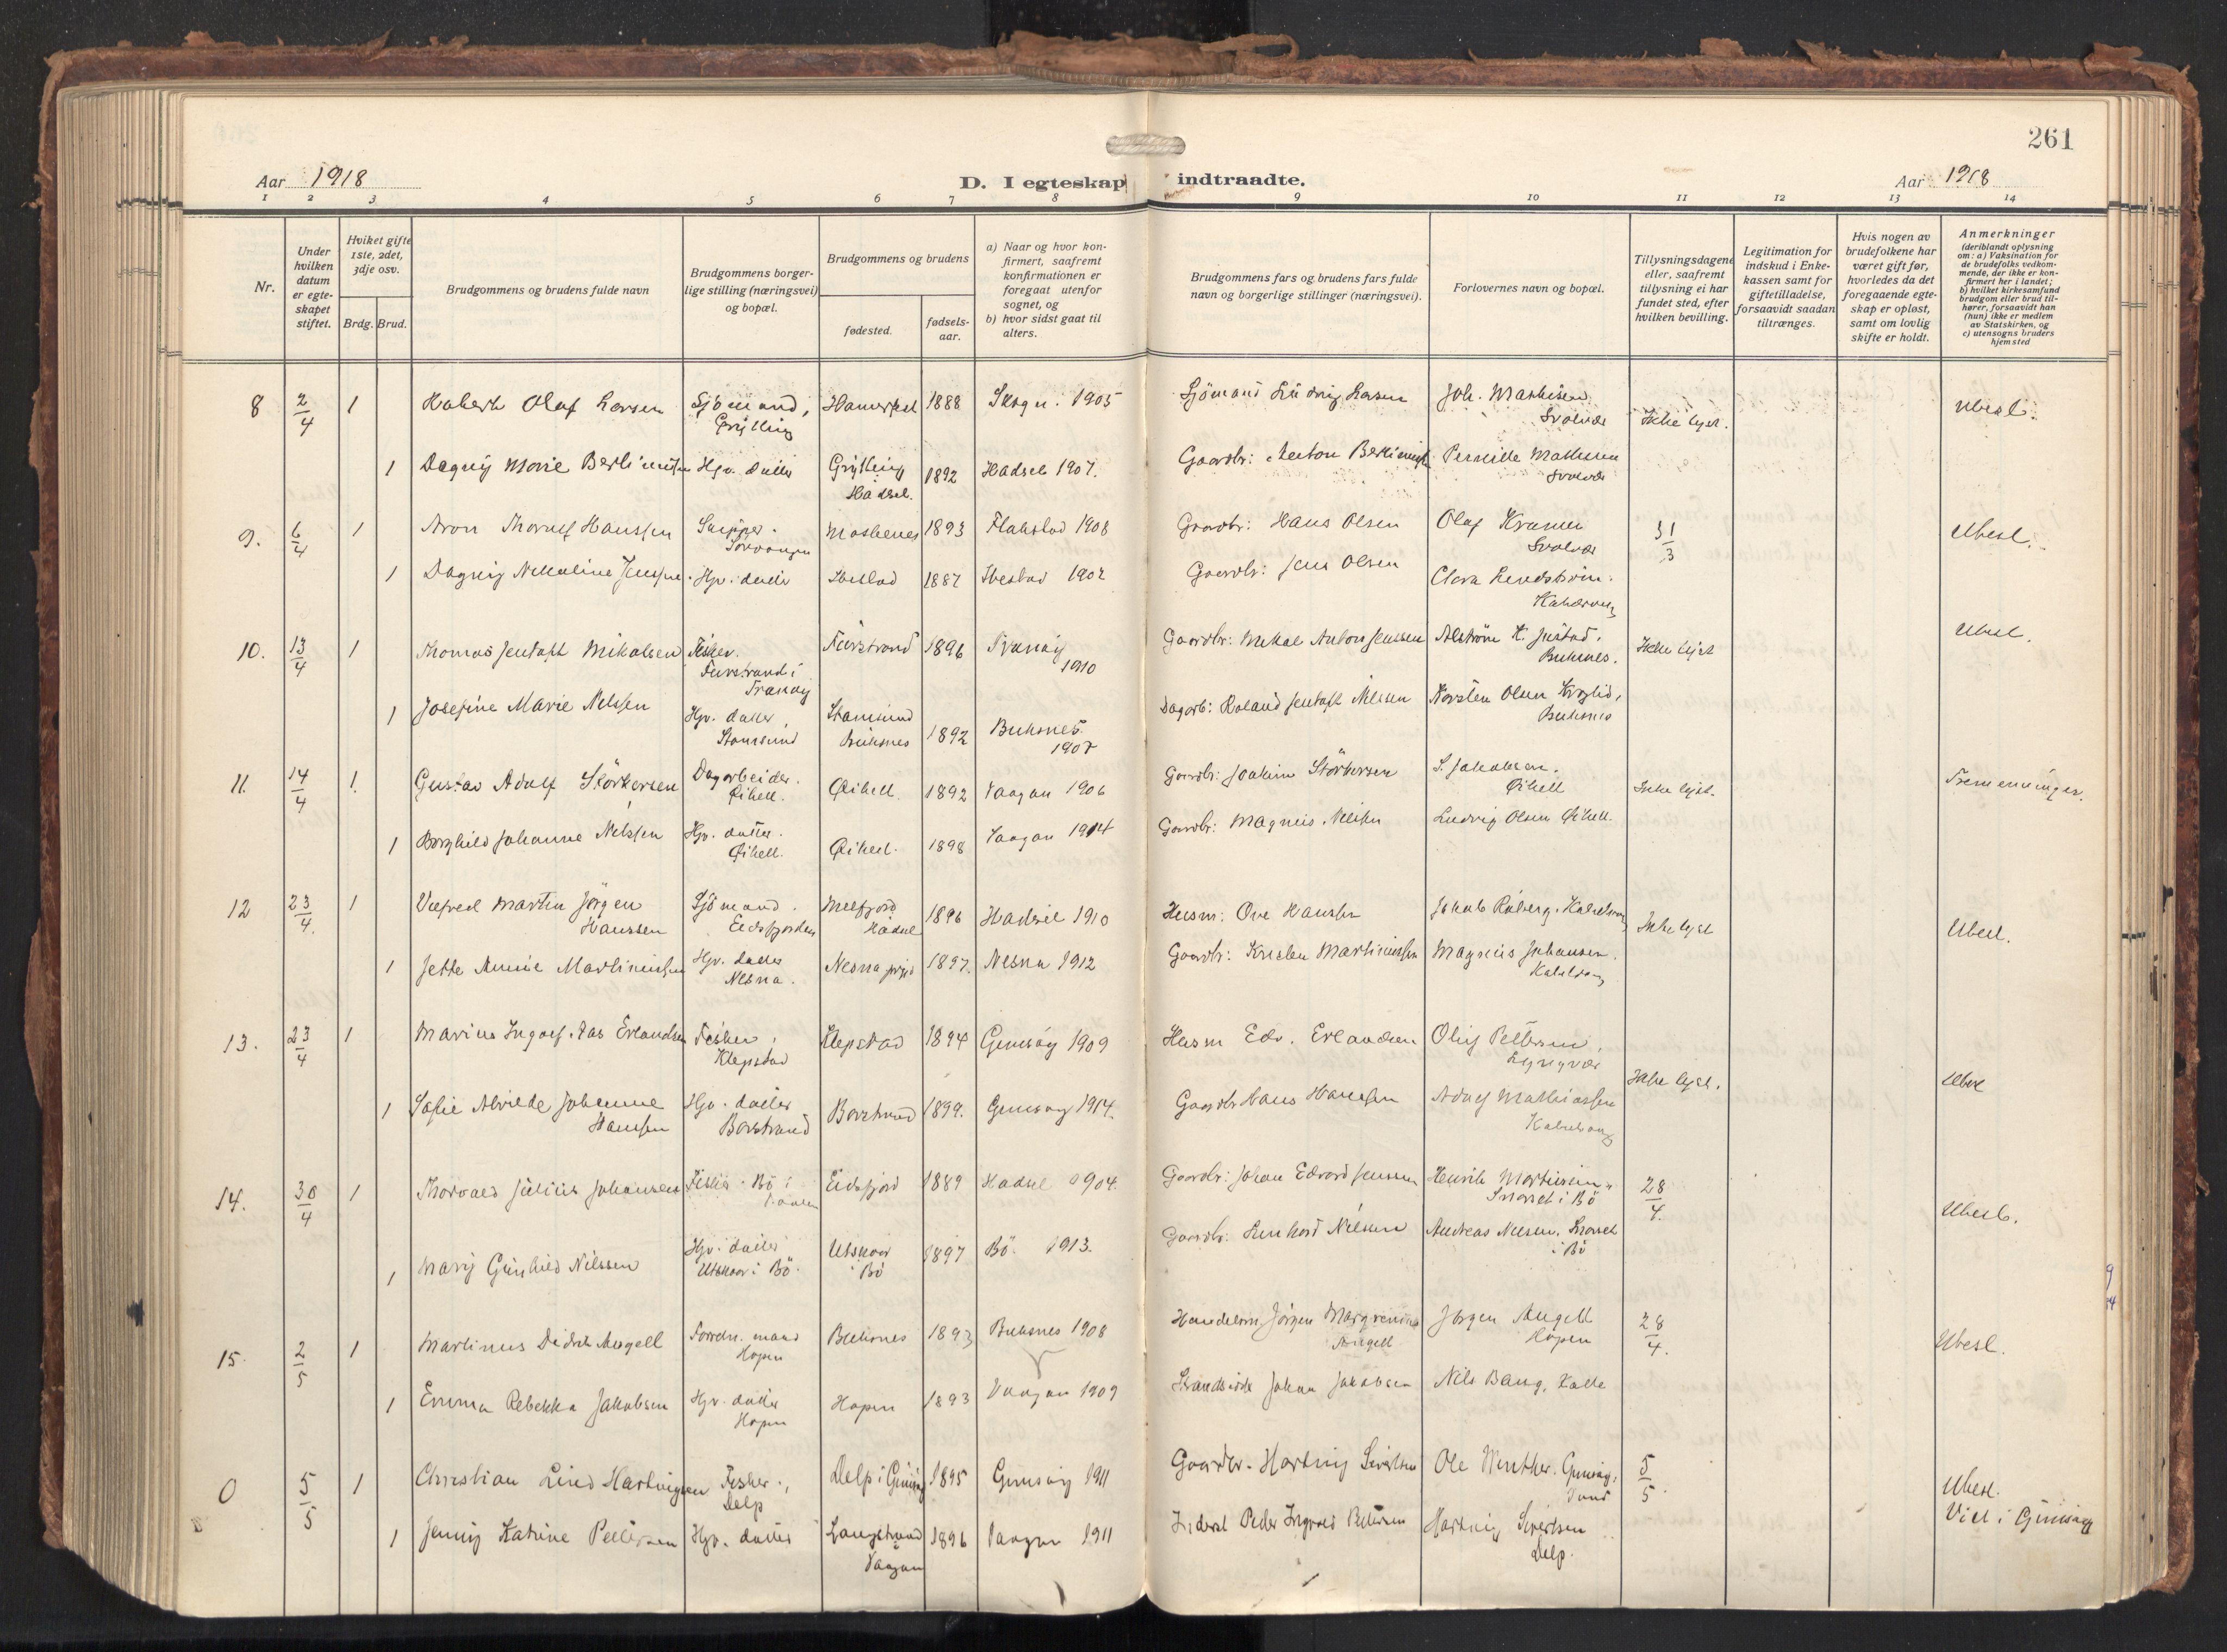 261
Aar 1918
D. I egteskap indtraadte.
Aar 1918
1 2 3 4 5 6 7 8 9 10 11 12 13 14
Nr.
Under hvilken datum er egteskapet stiftet.
Hviket gifte 1ste, 2det, 3dje osv.
Brdg. Brud.
Brudgommens og brudens fulde navn
Brudgommens borgerlige stilling (næringsvei) og bopæl.
Brudgommens og brudens
fødested.
fødselsaar.
a) Naar og hvor konfirmert, saafremt konfirmationen er foregaat utenfor sognet, og
b) hvor sidst gaat til alters.
Brudgommens fars og brudens fars fulde navn og borgerlige stillinger (næringsvei).
Forlovernes navn og bopæl.
Tillysningsdagene eller, saafremt tillysning ei har fundet sted, efter hvilken bevilling.
Legitimation for indskud i Enkekassen samt for giftetilladelse, forsaavidt saadan tiltrænges.
Hvis nogen av brudefolkene har været gift før, hvorledes da det foregaaende egteskap er opløst, samt om lovlig skifte er holdt.
Anmerkninger (deriblandt oplysning om: a) Vaksination for de brudefolks vedkommende, der ikke er konfirmert her i landet; b) hvilket kirkesamfund brudgom eller brud tilhører, forsaavidt han (hun) ikke er medlem av Statskirken, og c) utensogns bruders hjemsted
8 2/4 1 Olaf Larsen Sjömand, 1888 Skogn. 1905 Sjömand Ludvig Larsen Joh. Mathisen Svolvær Ikke lyst. Ubesl.
1 Dagny Marie Hgv. datter Grytting Hadsel. 1892 Hadsel 1907. Gaardbr: Anton Pernille Mathisen Svolvær
9. 6/4 1 Aron Thoralf Hanssen Moskenes 1893 Flakstad 1908 Gaardbr: Hans Olsen Olaf Kramer Svolvær 31/3 Ubesl.
1 Dagny Nikoline Hgv. datter Ibestad 1887 Ibestad 1902 Gaardbr: Jens Olsen Clara Lindström.
10. 13/4 1 Thomas Jentoft Mikalsen Fisker. i Tranöy 1896 Tranöy 1910 Gaardbr: Mikal Anton Jenssen Buksnes. Ikke lyst Ubesl.
1 Josefine Marie Nilssen Hgv. datter, Stamsund Stamsund Buksnes 1892 Buksnes 1907 Roland Jentoft Nilssen Olsen Buksnes
11. 14/4 1. Gustav Adolf Störkersen Dagarbeider. Öihell. Öihell. 1892 Vaagan 1906 Gaardbr: Joakim Störkersen S. Jakobsen. Öihell Ikke lyst. Tremenninger.
1 Borghild Johanne Nilssen Hgv. datter. Öihell. Öihell. 1898 Vaagan 1914 Gaardbr: Magnus Nilssen Ludvig Olsen Öihell.
12 23/4. 1 Martin Jörgen Hanssen Sjömand. Eidsfjorden Melfjord Hadsel 1896 Hadsel 1910 Husm: Ove Hanssen Jakob Ikke lyst Ubesl.
1 Jette Martinussen Hgv. datter Nesna. Nesna 1897. Nesna 1912 Gaardbr: Martinussen Magnus Johansen.
13. 23/4 1 Marius Ingolf Erlandsen Fisker, Klepstad Klepstad 1894 Gimsöy 1909 Husm Edv. Erlandsen Pettersen, Ikke lyst. Ubesl
1 Sofie Alvilde Johanne Hanssen Hgv. datter Barstrand Barstrand 1899. Gimsöy 1914. Gaardbr Hans Hanssen Adolf Mathiassen
14. 30/4 1 Thorvald Julius Johansen Fisker. Bö i Eidsfjord 1889 Hadsel 1904. Gaardbr: Johan Edvard Jenssen Henrik i Bö 28/4. Ubesl.
1 Mary Gunhild Nilssen Hgv. datter Utskor i Bö. Utskor i Bö 1897 Bö. 1913. Gaardbr: Nilssen Andreas Nilssen, i Bö
15. 2/5 1 Martinus Didrik Angell Hopen Buksnes 1893 Buksnes 1908 Jörgen Angell Jörgen Angell Hopen 28/4. Ubesl.
1 Emma Rebekka Jakobsen Hgv. datter Hopen Hopen 1893 Vaagan 1909 Johan Jakobsen Nils Bang, Kalle
0 5/5 1 Christian Lind Hartvigsen Fisker, Delp Delp i Gimsöy 1895 Gimsöy 1911 Gaardbr. Hartvig Sivertsen Ole Winther. 5/5. Ubesl. Viet i Gimsöy
1 Jenny Katrine Pettersen Hgv. datter Langstrand i Vaagan 1896 Vaagan 1911 Peder Ingvald Pettersen Hartvig Sivertsen Delp.